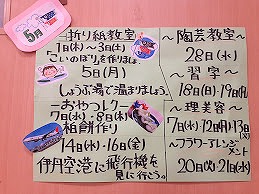 5月
折り紙教室
1日(木)〜3日(土)
こいのぼりを作りましょう
5日(月)
しょうぶ湯で温まりましょう
おやつレク
7日(水)・8日(木)
柏餅作り
14日(水)・16日(金)
伊丹空港に飛行機を
見に行こう。
〜陶芸教室〜
28日(水)
〜習字〜
18日(日)・19日(月)
〜理美容〜
7日(水)・12日(月)・13日(火)
〜フラワーアレンジ
メント〜
20日(火)・21日(水)